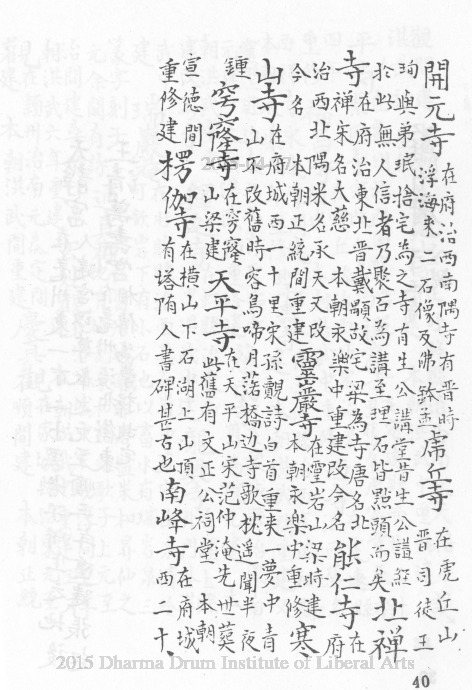 開元寺在府治西南隅寺有晋時浮海來二石像及佛鉢盂虎丘寺在虎丘山晋司徒王
珣與弟珉捨宅為之寺有生公講堂昔生公講經於此無人信者乃聚石為講至理石皆點頭而矣北禪
寺在府治東北晋戴顒故宅梁為寺唐名北禪宋名大慈 本朝永樂中重建改今名能仁寺在府
治西北隅米名承天又改今名 本朝正統間重建靈巖寺在靈岩山梁時建本朝永樂中重修寒
山寺在府城西一十里宋孫覿詩白首重来一夢中青山不改舊時容烏啼月落橋邉寺歌枕遥聞半夜
鍾穹窿寺在穹窿山梁建天平寺在天平山宋范仲淹先世葬此舊有文正公祠堂 本朝
宣德間重修建楞伽寺在横山下石湖上山頂有塔隋人書碑甚古也南峰寺在府城西二十
2015 Dharma Drum Institute of Liberal Arts
40